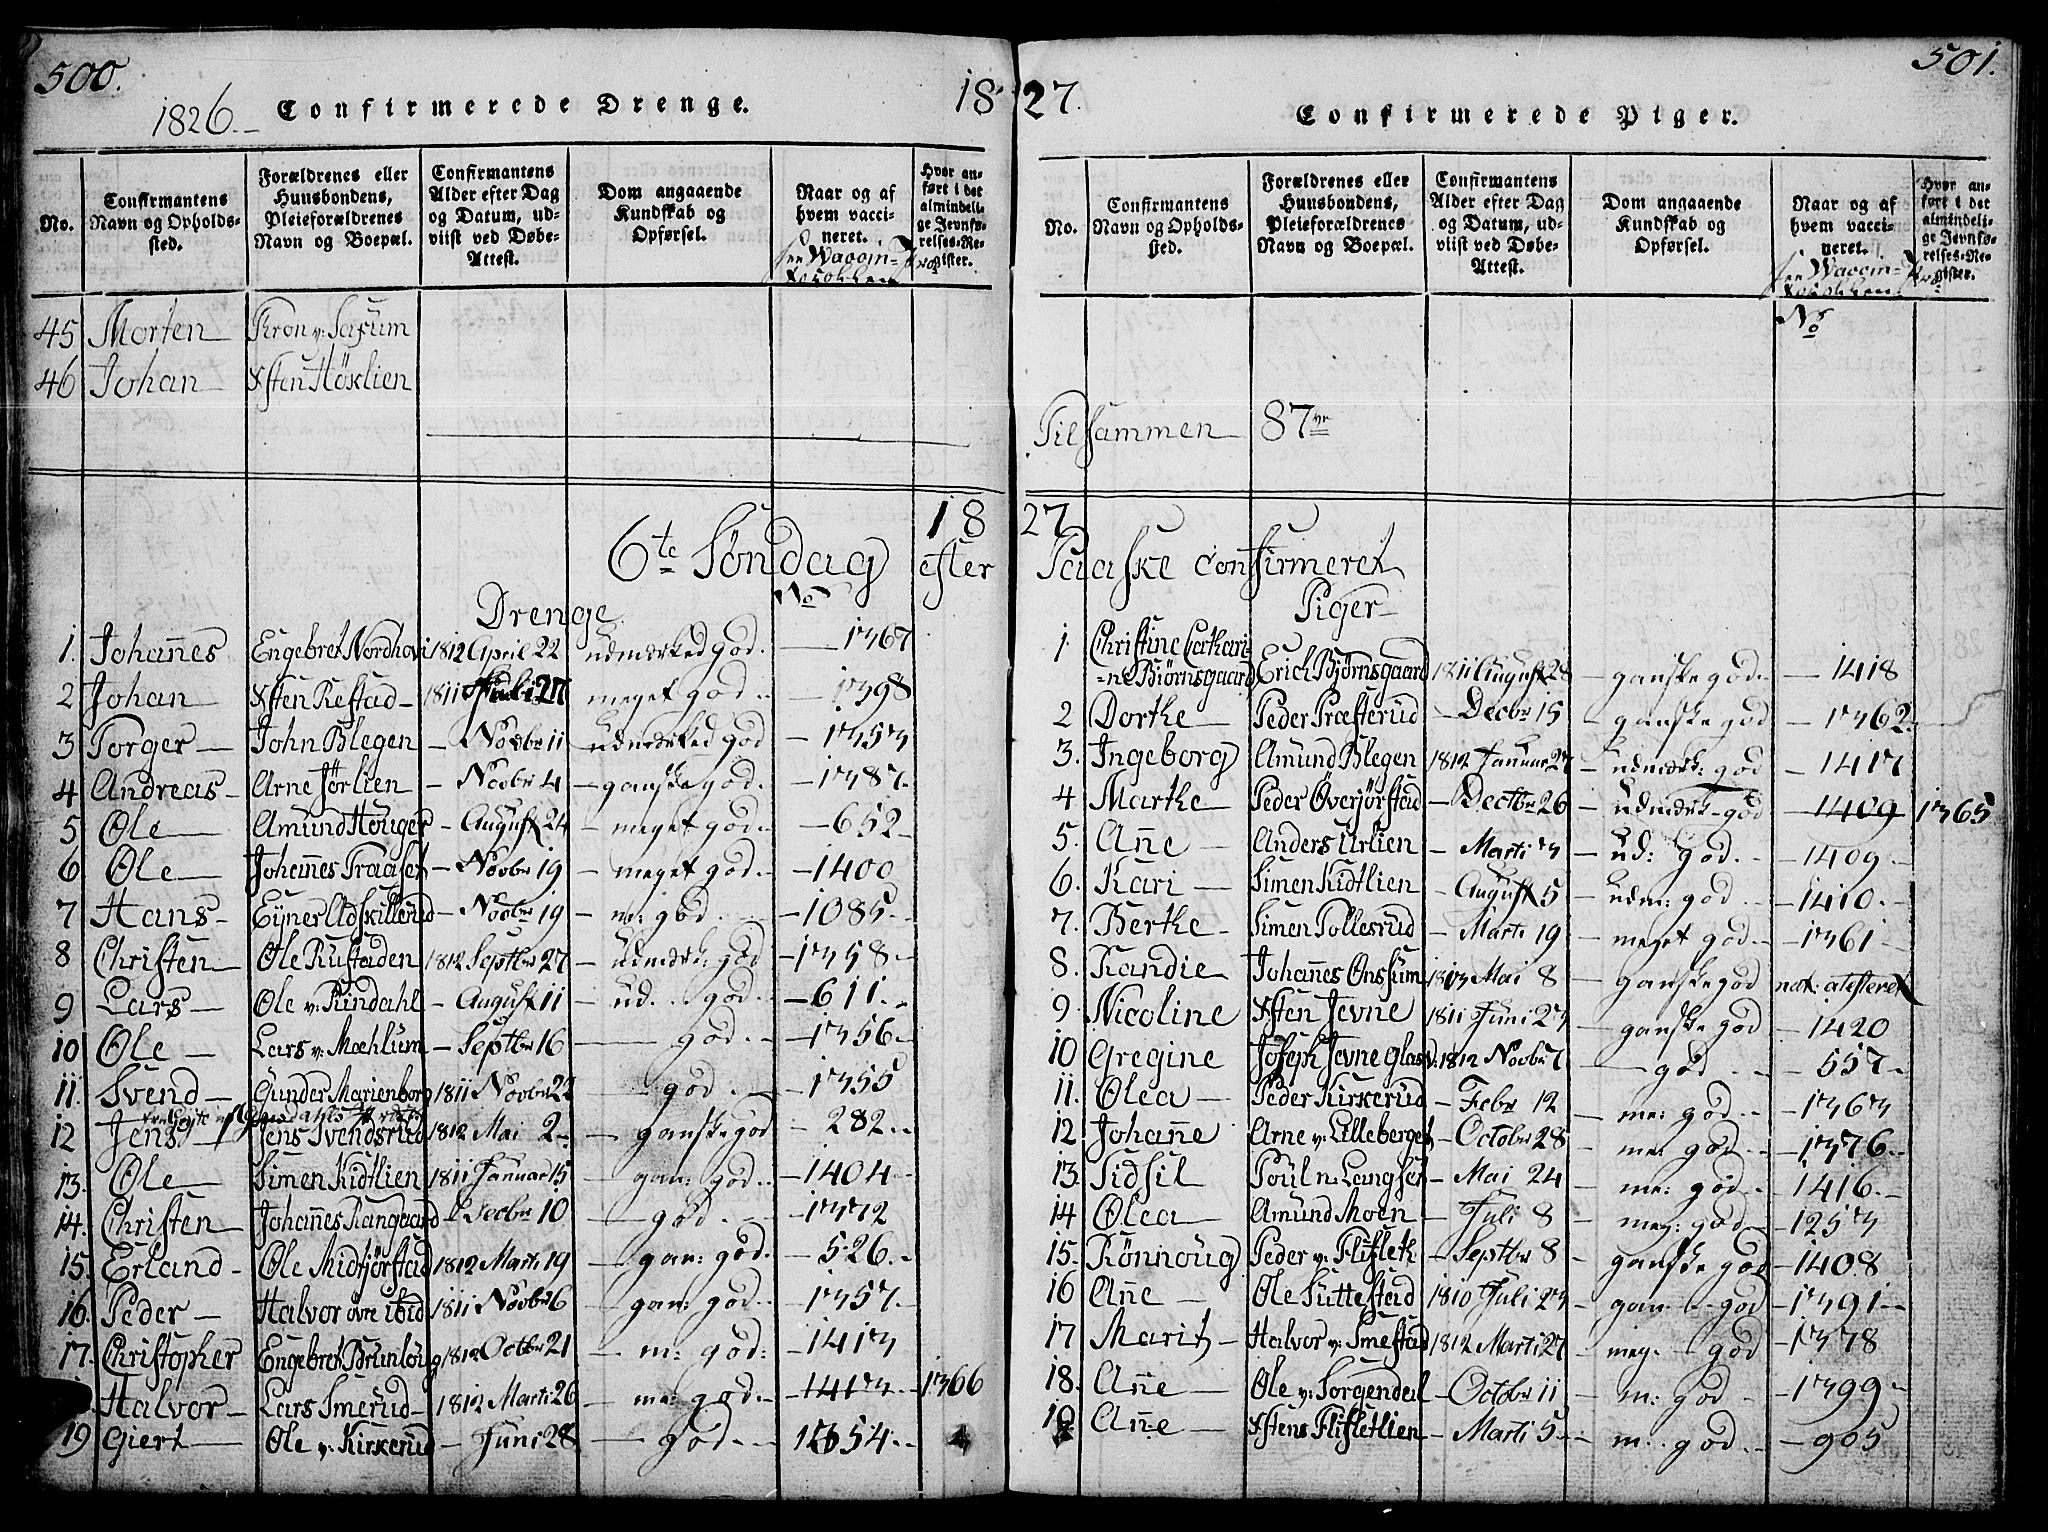 500.
1826.–
Confirmerede Drenge.
18
No.
Confirmantens Navn og Opholdssted.
Forældrenes eller Huusbondens, Pleieforældrenes Navn og Boepæl.
Confirmantens Alder efter Dag og Datum, udviist ved Døbe-Attest.
Dom angaaende Kundskab og Opførsel.
Naar og af hvem vaccineret.
Hvor anført i det almindelige Jevnførelses-Register.
45 Morten Kron v: Saxum
46 Johan Østen Höslien
18
6te Søndag efter
Drenge No
1. Johannes Engebret Nordhovi 1812 April 22 udmærked god. 1367
2 Johan Østen Restad 1811 Juli 27 meget god 1398
3 Torger John Blegen – Novbr 11 – udmærked god – 1353
4 Andreas Arne Jørlien – Novbr 4 – ganske god – 1387.
5 Ole Amund Houger – August 24 – meget god – 652
6 Ole Johannes Traaset – Novbr 19 – meget god – 1400
7 Hans Eyner Udskillerud – Novbr 19 – m: god – 1085
8 Christen Ole Rustaden 1812 Septbr 27 – udmærk: god – 1358
9 Lars Ole v: Rindahl – August 11 – ud. god – 611
10 Ole Lars v: Mæhlum – Septbr 16 – god – 1356
11 Svend Gunder Marienborg 1811 Novbr 22 – god – 1355
12 Jens Jens Svendsrud 1812 Mai 2 – ganske god – 282
13. Ole Simen Kidtlien 1811 Januar 15 – gan: god – 1404
14. Christen Johannes Rangaard Decbr 10 – god – 1372
15. Erland Ole Midtjørstad 1812 Marti 19 – gan: god – 526
16. Peder Halvor øvre ibid 1811 Novbr 6 – gan: god – 1357
17. Christopher Engebret Brunloug 1812 Octbr 21 – m: god – 1413
Halvor Lars Smerud 1812 Marti 26 – me: god – 1413 – 1366
19 Giert Ole v: Kirkerud – Juni 28 – god – 1654
27.
501.
Confirmerede Piger.
No.
Confirmantens Navn og Opholdssted.
Forældrenes eller Huusbondens, Pleieforældrenes Navn og Boepæl.
Confirmantens Alder efter Dag og Datum, udviist ved Døbe-Attest.
Dom angaaende Kundskab og Opførsel.
Naar og af hvem vaccineret.
Hvor anført i det almindelige Jevnførelses-Register.
No
Tilsammen 87ve
27
Paaske confirmeret
Piger
1. Christine Cathari-
-ne Biørnsgaard Erich Bjørnsgaard 1811 August 28 – ganske god – 1418
2 Dorthe Peder Præsterud – Decbr 15 – ganske god – 1362
3. Ingeborg Amund Blegen 1812 Januar 27 – udmærk: god – 1417
4 Marthe Peder Överjørstad – Decbr 26 – udmærk. god – 1409 1365
5. Anne Anders Urlien – Marti 3 – ud: god – 1409
6. Kari Simen Kidtlien – August 5 – udm: god – 1410
7. Berthe Simen Tollesrud – Marti 19 – meget god – 1361
8. Randie Johannes Onssum 1813 Mai 8 – ganske god nat: atesteret
9. Nicoline Østen Jevne 1811 Juni 23 – ganske god – 1420
10 Gregine Joseph Jevne Glasv: 1812 Novbr 7 – god – 557
11. Olea Peder Kirkerud – Febr 12 – me: god – 1363
12 Johanne Arne v: Lilleberget – October 28 – me: god – 1376
13. Sidsil Poul n: Langset – Mai 24 – me: god – 1416
14 Olea Amund Moen – Juli 8 – meg: god – 1253
15. Rønnoug Peder v: Flifleth – Septbr 8 – ganske god – 1408
16 Anne Ole Suttestad 1810 Juli 23 – gan. god – 1391
17 Marit Halvor v: Smestad 1812 Marti 27 – meg. god – 1378
18. Anne Ole v: Sorgendal – October 11 – m: god – 1399
19 Anne Østen Flifletlien – Marti 5 – m. god – 905